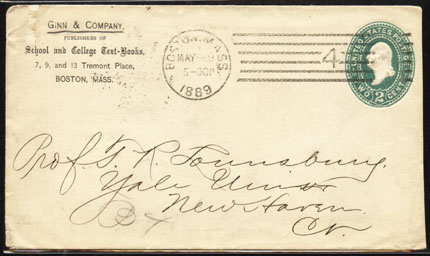 GINN & COMPANY,
PUBLISHERS OF
School and College Text-Books,
7, 9, and 13 Tremont Place,
BOSTON, MASS.
BOSTON, MASS.
MAY
5-30P
1889
4
UNITED STATES POSTAGE
TWO 2 CENTS
Prof. T. R. Lounsbury.
Yale Univ.
New Haven
Ct.